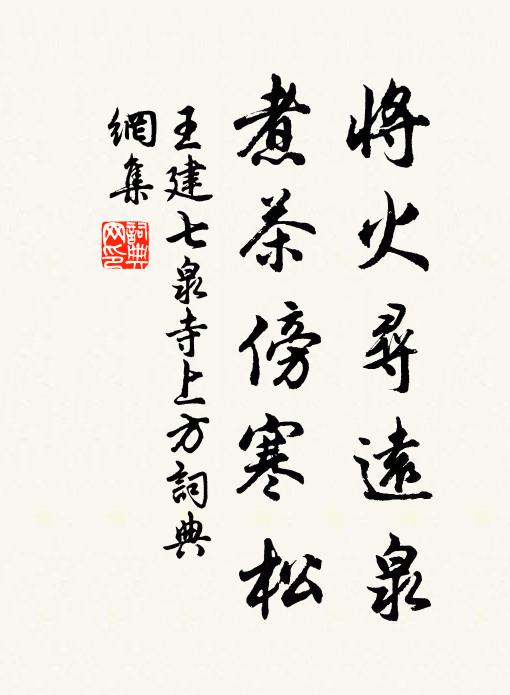 將火尋遠泉
煮茶傍寒松
王建七泉寺上方詞典
網集
詞典
网印